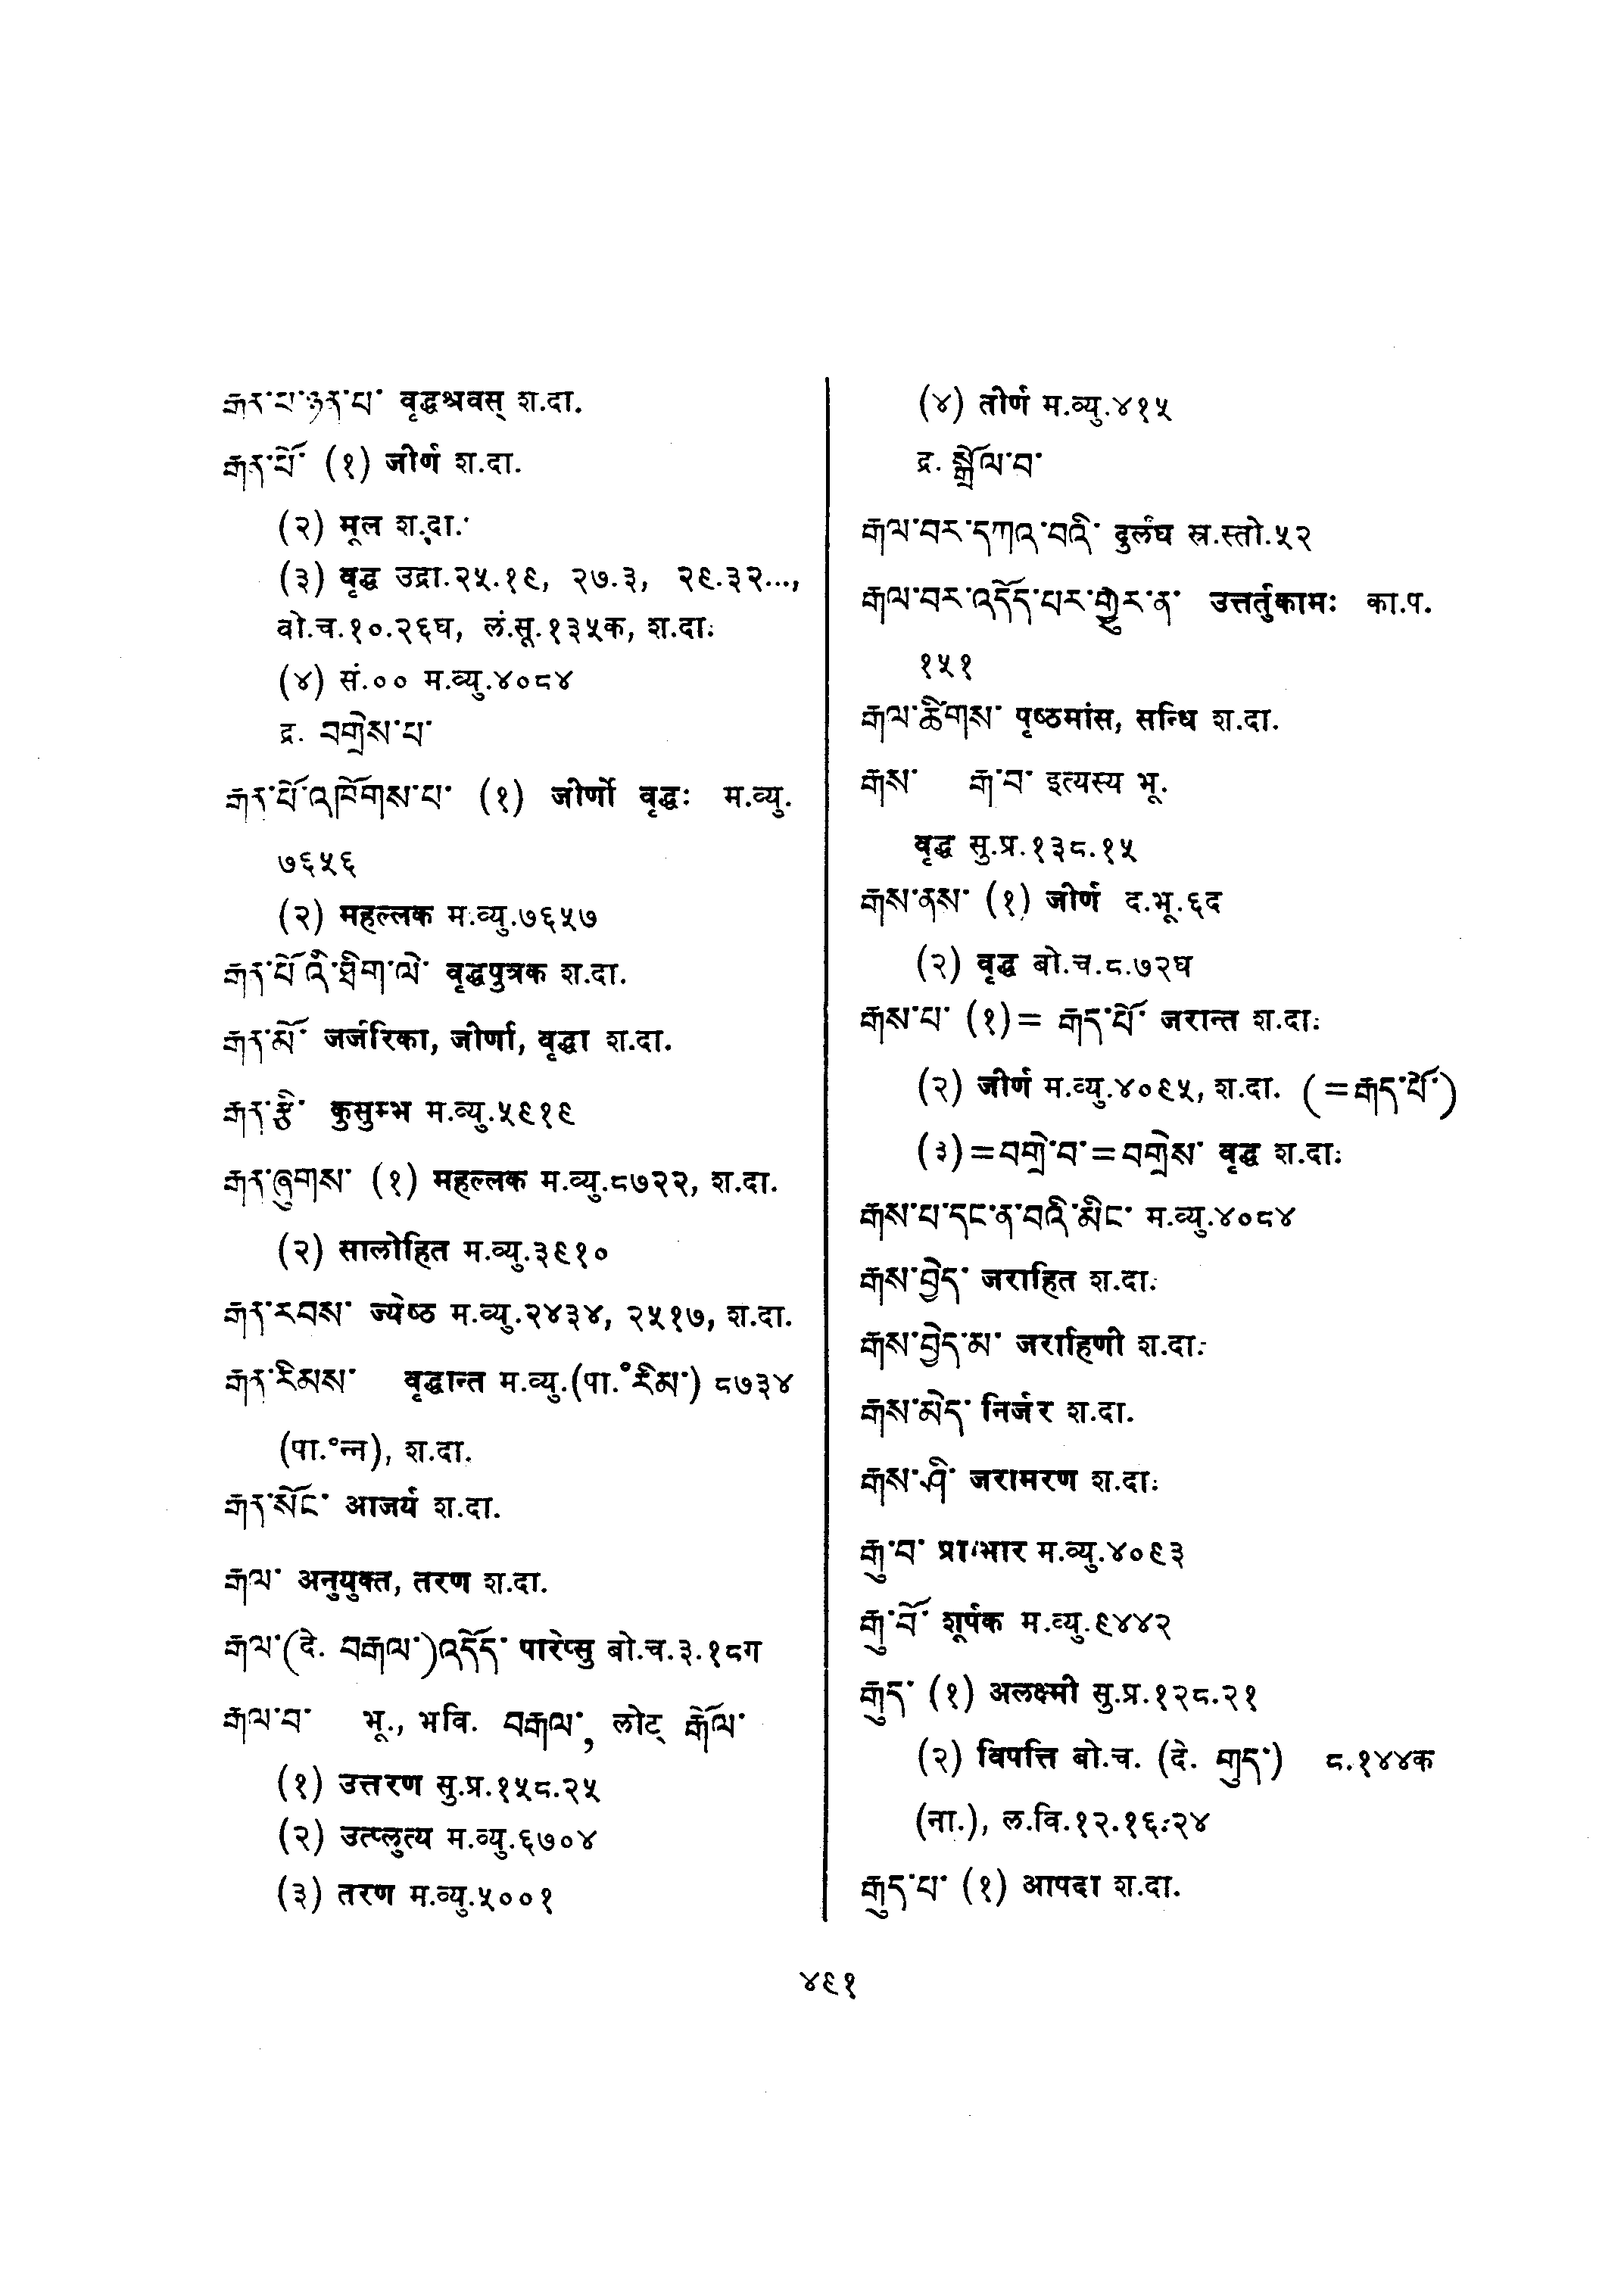 རྒན་པ་ཉན་པ་ वृद्धश्रवस् श.दा.
རྒན་པོ་ (१) जीर्ण श.दा.
(२) मूल श.दा.
(३) वृद्ध उद्रा.२५.१९, २७.३, २९.३२...,
बो.च.१०.२६घ, लं.सू.१३५क, श.दा.
(४) सं.०० म.व्यु.४०८४
द्र. བགྲེས་པ་
རྒན་པོ་འཁོགས་པ་ (१) जीर्णो वृद्धः म.व्यु.
७६५६
(२) महल्लक म.व्यु.७६५७
རྒན་པོ་འི་ཐིག་ལེ་ वृद्धपुत्रक श.दा.
རྒན་མོ་ जर्जरिका, जीर्णा, वृद्धा श.दा.
རྒན་རྩི་ कुसुम्भ म.व्यु.५९१९
རྒན་ཞུགས་ (१) महल्लक म.व्यु.८७२२, श.दा.
(२) सालोहित म.व्यु.३९१०
རྒན་རབས་ ज्येष्ठ म.व्यु.२४३४, २५१७, श.दा.
རྒན་རིམས་ वृद्धान्त म.व्यु.(पा.°རིམ་) ८७३४
(पा.°न्न), श.दा.
རྒན་སོང་ आजर्य श.दा.
རྒལ་ अनुयुक्त, तरण श.दा.
རྒལ་(दे. བརྒལ་)འདོད་ पारेप्सु बो.च.३.१८ग
རྒལ་བ་ भू., भवि. བརྒལ་, लोट् རྒོལ་
(१) उत्तरण सु.प्र.१५८.२५
(२) उत्प्लुत्य म.व्यु.६७०४
(३) तरण म.व्यु.५००१
(४) तीर्ण म.व्यु.४१५
द्र. སྒྲོལ་བ་
རྒལ་བར་དཀའ་བའི་ दुर्लंघ स्र.स्तो.५२
རྒལ་བར་འདོད་པར་གྱུར་ན་ उत्तर्तुकामः का.प.
१५१
རྒལ་ཚིགས་ पृष्ठमांस, सन्धि श.दा.
རྒས་ རྒ་བ་ इत्यस्य भू.
वृद्ध सु.प्र.१३८.१५
རྒས་ནས་ (१) जीर्ण द.भू.६द
(२) वृद्ध बो.च.८.७२घ
རྒས་པ་ (१)= རྒད་པོ་ जरान्त श.दा.
(२) जीर्ण म.व्यु.४०९५, श.दा. (=རྒད་པོ་)
(३)=བགྲེ་བ་=བགྲེས་ वृद्ध श.दा.
རྒས་པ་དང་ན་བའི་མིང་ म.व्यु.४०८४
རྒས་བྱེད་ जराहित श.दा.
རྒས་བྱེད་མ་ जराहिणी श.दा.
རྒས་མེད་ निर्जर श.दा.
རྒས་ཤི་ जरामरण श.दा.
རྒུ་བ་ प्राग्भार म.व्यु.४०९३
རྒུ་བོ་ शूर्पक म.व्यु.९४४२
རྒུད་ (१) अलक्ष्मी सु.प्र.१२८.२१
(२) विपत्ति बो.च. (दे. གུད་) ८.१४४क
(ना.), ल.वि.१२.१६.२४
རྒུད་པ་ (१) आपदा श.दा.
४९१